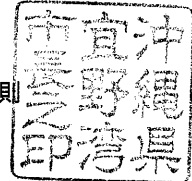 沖縄県
宜野湾
市長之印
則